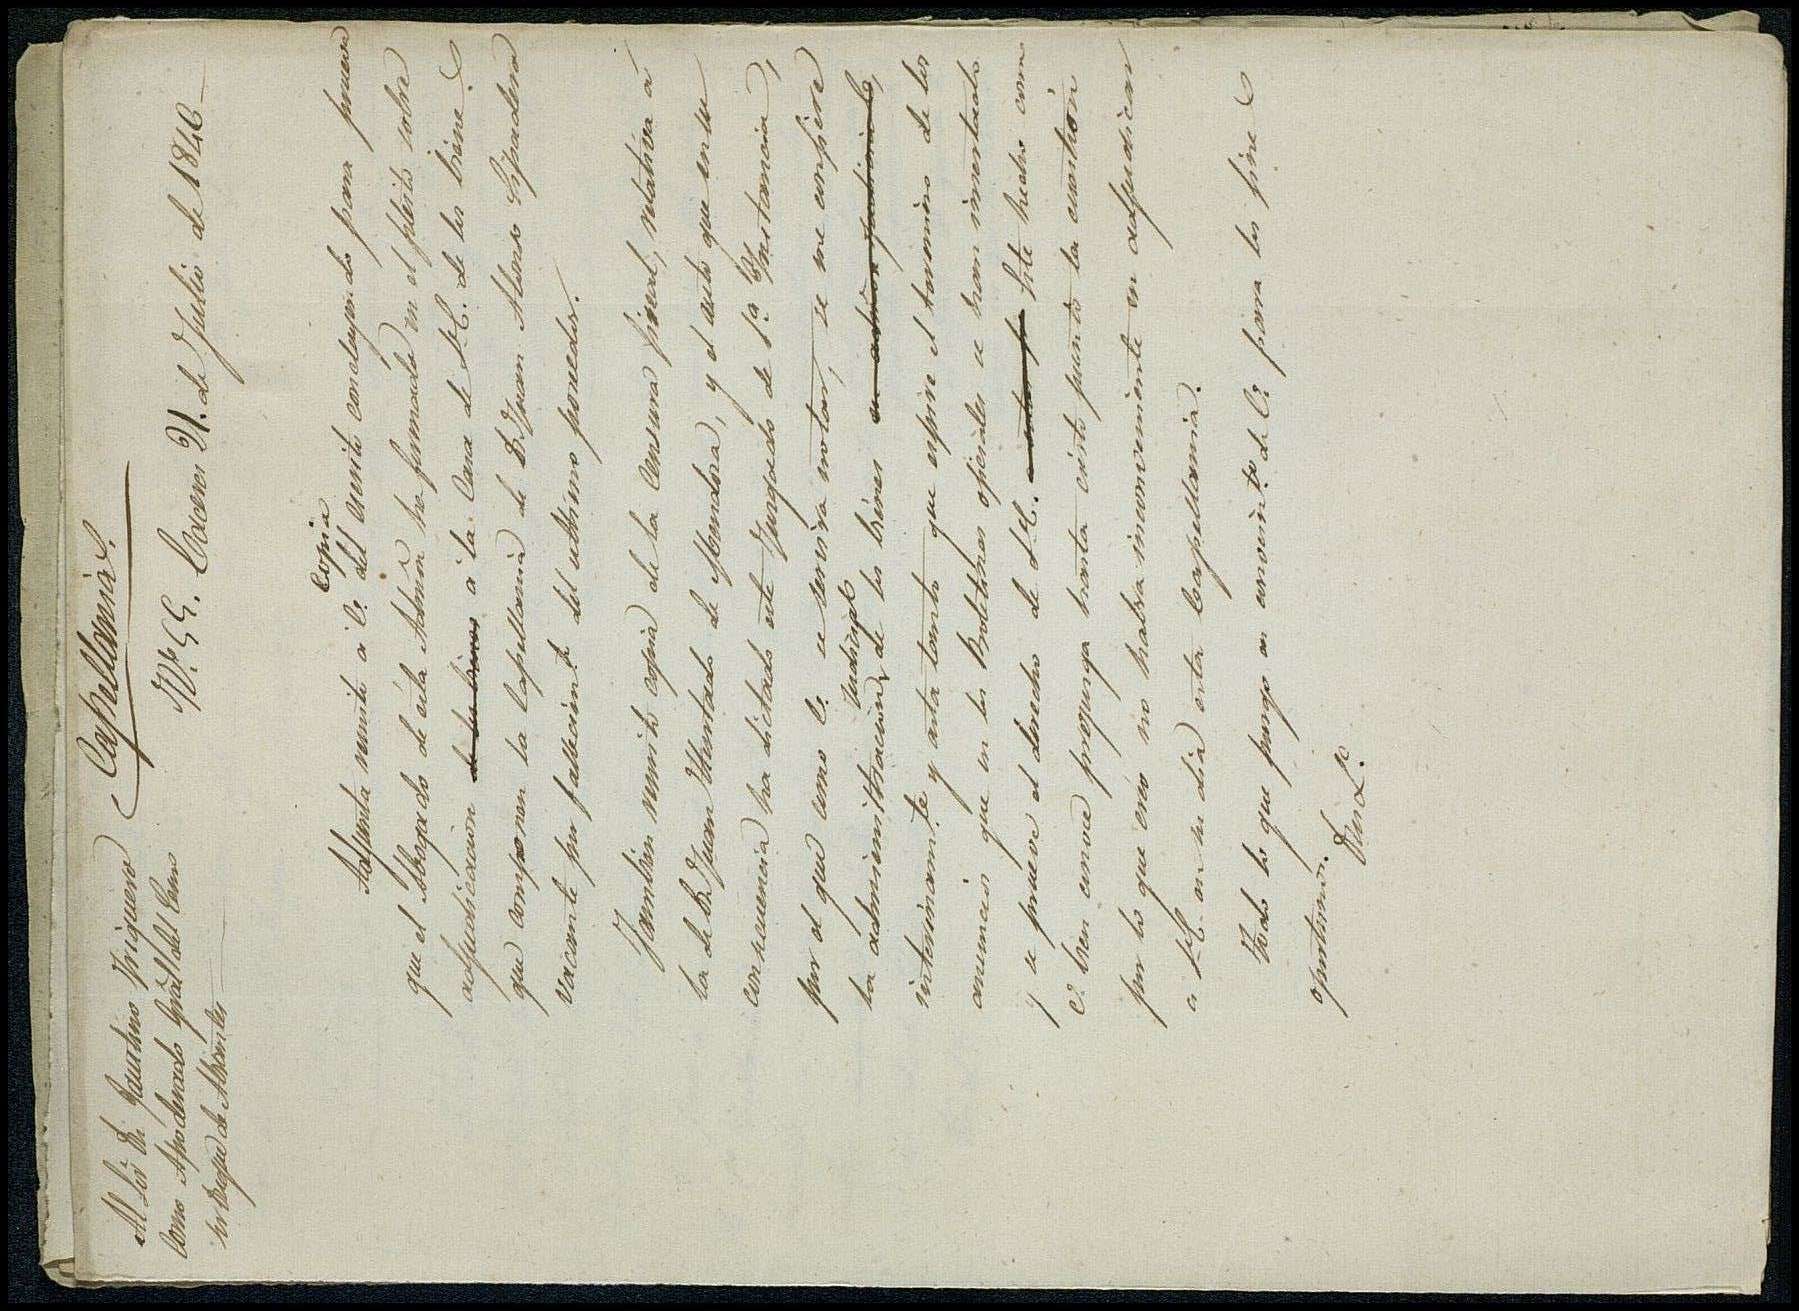 Al Sor Dn Faustino Trigueros
como Apoderado Gral del Exmo
Sr Duque de Abrantes
Capellanias.
Caceres 21. de Julio de 1846
copia
Adjunta remito a V. del escrito concluyendo para prueba
que el Abogado de esta Admon ha formado en el pleito sobre
adjudicacion de los bienes a la Casa de S.E. de los bienes
que componen la Capellania de D. Juan Alonso
vacante por fallecimto del ultimo poseedor.
Tambien remito copia de la Censura fiscal, relativa a
la de D. Juan Hurtado de Mendoza, y el auto que en su
consecuencia ha dictado este Juzgado de 1.a Instancia,
por el que como V. se servirá notar, se me confiere
judicial
la administracion, de los bienes
interinamte y esta tanto que espire el termino de los
anuncios que en los Boletines oficiales se han insertado
y se prueve el derecho de S.E. Este hecho como
V. bien conoce prejuzga hasta cierto punto la cuestión
por lo que creo no habra inconveniente en adjudicar
a S.E. en su dia esta Capellania.
Todo lo que pongo en conocimto de V. para los fines
oportunos.